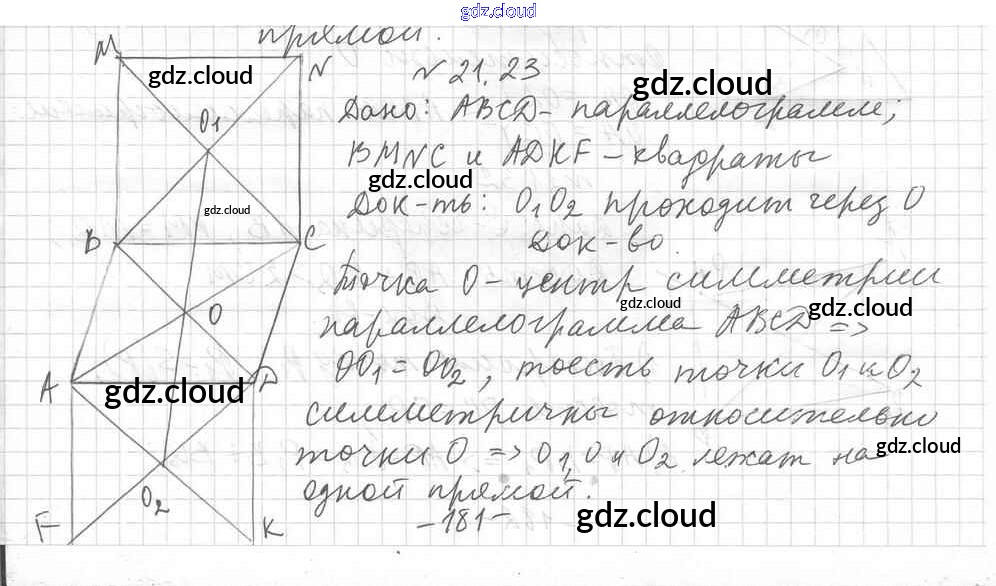 gdz.cloud
прямой.
M
N
gdz.cloud
N 21.23
gdz.cloud
O1
Дано: ABCD - параллелограмм;
BMNC и ADKF - квадраты
gdz.cloud
gdz.cloud
Док-ть: O1O2 проходит через O
B
C
Док-во.
Точка O - центр симметрии
gdz.cloud
gdz.cloud
O
параллелограмма ABCD =>
A
gdz.cloud
D
OO1 = OO2, тоесть точки O1 и O2
симметричны относительно
gdz.cloud
точки O => O1, O и O2 лежат на
O2
одной прямой.
F
K
-181-
gdz.cloud